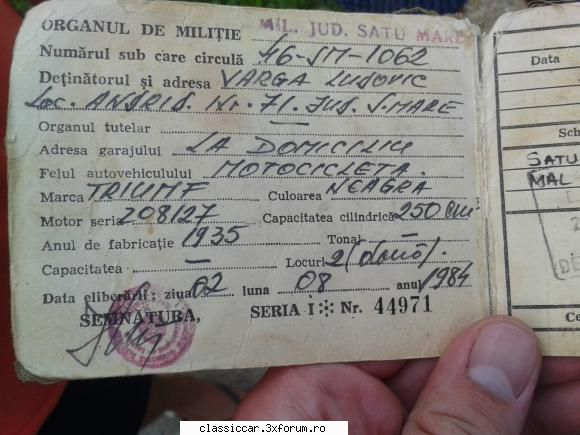 ORGANUL DE MILIȚIE MIL. JUD. SATU MARE
Numărul sub care circulă 46-SM-1062
Deținătorul și adresa VARGA LUDOVIC
Loc. Nr. 71. JUD. S-MARE
Organul tutelar —
Adresa garajului LA DOMICILIU
Felul autovehiculului MOTOCICLETA.
Marca TRIUMF Culoarea NEAGRA
Motor seria 208127 Capacitatea cilindrică 250 cm
Anul de fabricație 1935 Tonaj —
Capacitatea — Locuri 2 (două).
Data eliberării: ziua 02 luna 08 anul 1984
SEMNĂTURA, SERIA I Nr. 44971
Data
SATU
MAL
classiccar.3xforum.ro